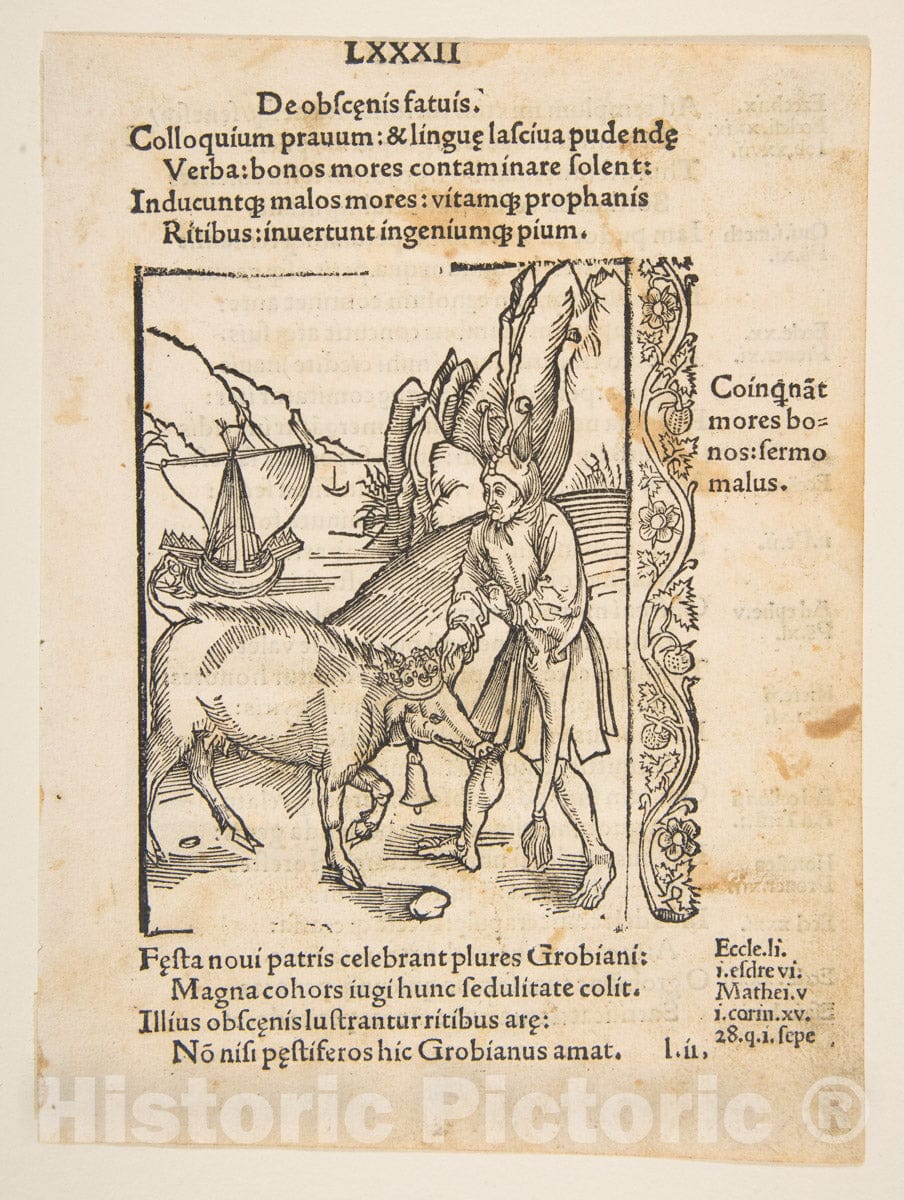 LXXXII
De obſcęnis fatuis.
Colloquium prauum: & linguę laſciua pudendę
Verba: bonos mores contaminare ſolent:
Inducuntqꝫ malos mores: vitamqꝫ prophanis
Ritibus: inuertunt ingeniumqꝫ pium.
Coinq̃nãt
mores bo=
nos: ſermo
malus.
Fęſta noui patris celebrant plures Grobiani:
Magna cohors iugi hunc ſedulitate colit.
Illius obſcęnis luſtrantur ritibus arę:
Nõ niſi pęſtiferos hic Grobianus amat. l.ii,
Eccle.li.
i.eſdre vi.
Mathei.v
i.corin.xv.
28.q.i.ſepe
Historic Pictoric ®